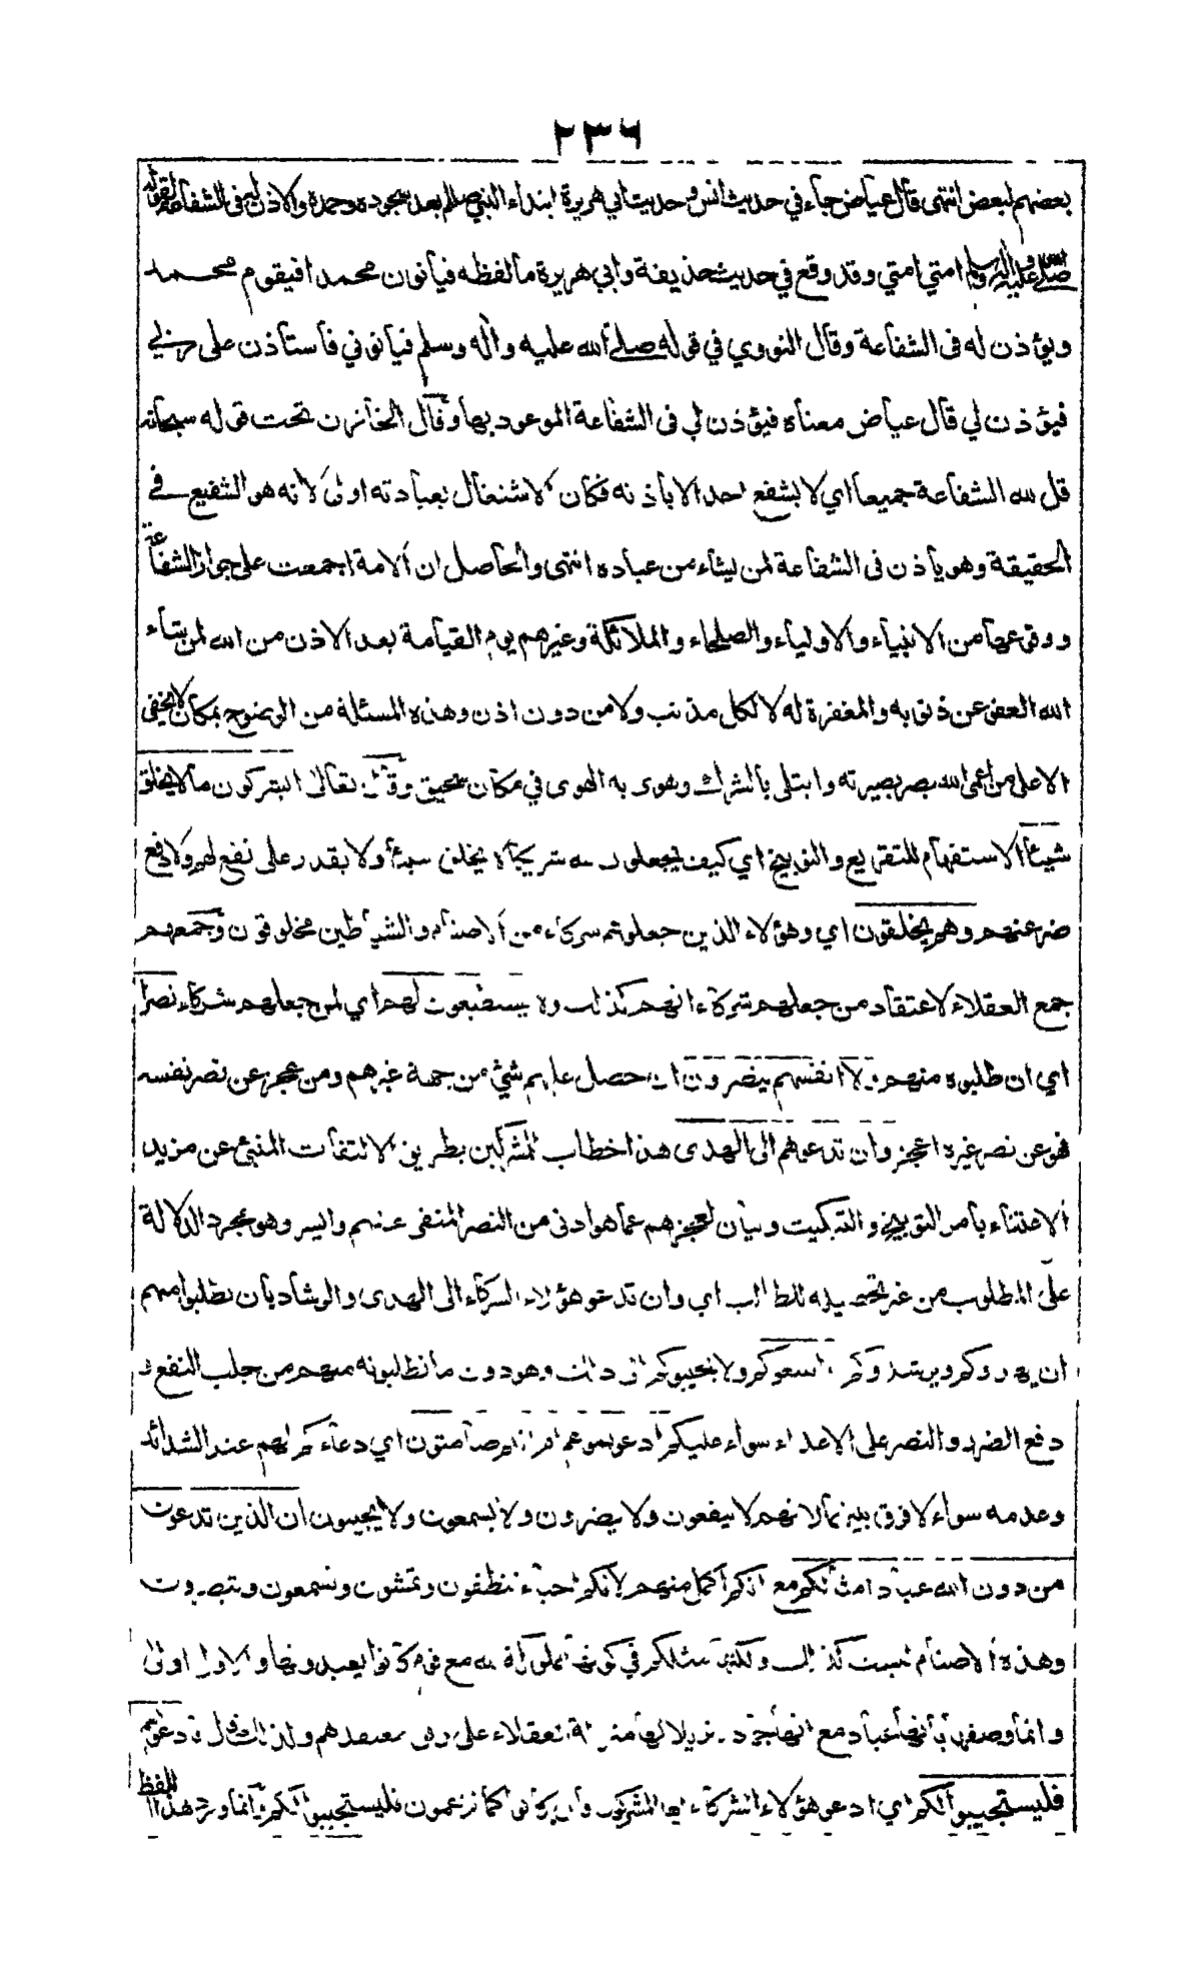 ٢٣٦
بعضهم لبعض انتهى قال عياض جاء في حديث انس وحديث ابي هريرة ابتداء النبي صلعم بعد سجوده وحمده والاذن له فى الشفاعة بقوله
صلى الله عليه وآله وسلم امتي امتي وقد وقع في حديث حذيفة وابي هريرة ما لفظه فيأتون محمدا فيقوم محمد
ويؤذن له فى الشفاعة وقال النووي في قوله صلى الله عليه وآله وسلم فيأتوني فأستأذن على ربي
فيؤذن لي قال عياض معناه فيؤذن لي فى الشفاعة الموعود بها وقال الخازن تحت قوله سبحانه
قل لله الشفاعة جميعا اي لا يشفع احد الا باذنه فكان الاشتغال بعبادته اولى لانه هو الشفيع في
الحقيقة وهو يأذن فى الشفاعة لمن يشاء من عباده انتهى والحاصل ان الامة اجمعت على جواز الشفاعة
ووقوعها من الانبياء والاولياء والصلحاء والملائكة وغيرهم يوم القيامة بعد الاذن من الله لمن يشاء
الله العفو عن ذنوبه والمغفرة له لا لكل مذنب ولا من دون اذن وهذه المسئلة من الوضوح بمكان لا يخفى
الا على من اعمى الله بصر بصيرته وابتلى بالشرك وهوى به الهوى في مكان سحيق وقال تعالى ايشركون ما لا يخلق
شيئا الاستفهام للتقريع والتوبيخ اي كيف يجعلون لله شريكا لا يخلق شيئا ولا يقدر على نفع لهم ولا دفع
ضر عنهم وهم يخلقون اي وهؤلاء الذين جعلوهم شركاء من الاصنام والشياطين مخلوقون وجمعهم
جمع العقلاء لاعتقاد من جعلهم شركاء انهم كذلك ولا يستطيعون لهم اي لمن جعلهم شركاء نصرا
اي ان طلبوه منهم ولا انفسهم ينصرون ان حصل عليهم شئ من جهة غيرهم ومن عجز عن نصر نفسه
فهو عن نصر غيره اعجز وان تدعوهم الى الهدى هذا خطاب للمشركين بطريق الالتفات المنبئ عن مزيد
الاعتناء بامر التوبيخ والتبكيت وبيان لعجزهم عما هو ادنى من النصر المنفى عنهم وايسر وهو مجرد الدلالة
على المطلوب من غير تحصيله للطالب اي وان تدعو هؤلاء الشركاء الى الهدى والرشاد بان تطلبوا منهم
ان يهدوكم ويرشدوكم لا يتبعوكم ولا يجيبوكم الى ذلك وهو دون ما تطلبونه منهم من جلب النفع و
دفع الضرر والنصر على الاعداء سواء عليكم ادعوتموهم ام انتم صامتون اي دعاءكم لهم عند الشدائد
وعدمه سواء لا فرق بينهما لانهم لا ينفعون ولا يضرون ولا يسمعون ولا يجيبون ان الذين تدعون
من دون الله عباد امثالكم مع انكم اكمل منهم لانكم احياء تنطقون وتمشون وتسمعون وتبصرون
وهذه الاصنام ليست كذلك ولكنها مثلكم في كونها مملوكة لله مع قوم كانوا يعبدونها والاول اولى
وانما وصفها بانها عباد مع انها جماد تنزيلا لها منزلة العقلاء على وفق معتقدهم ولذلك قال فادعوهم
فليستجيبوا لكم اي ادعو هؤلاء الشركاء ايها المشركون وان كانوا كما تزعمون فليستجيبوا لكم وانما ورد هذا اللفظ